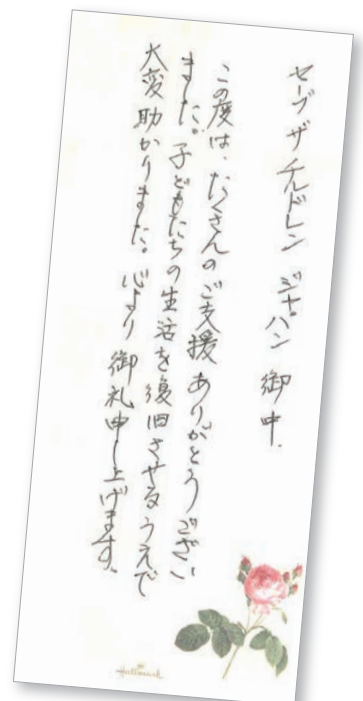 セーブ ザ チルドレン ジャパン 御中.
この度は、たくさんのご支援 ありがとうござい
ました。子どもたちの生活を復旧させるうえで
大変助かりました。心より御礼申し上げます。
Hallmark